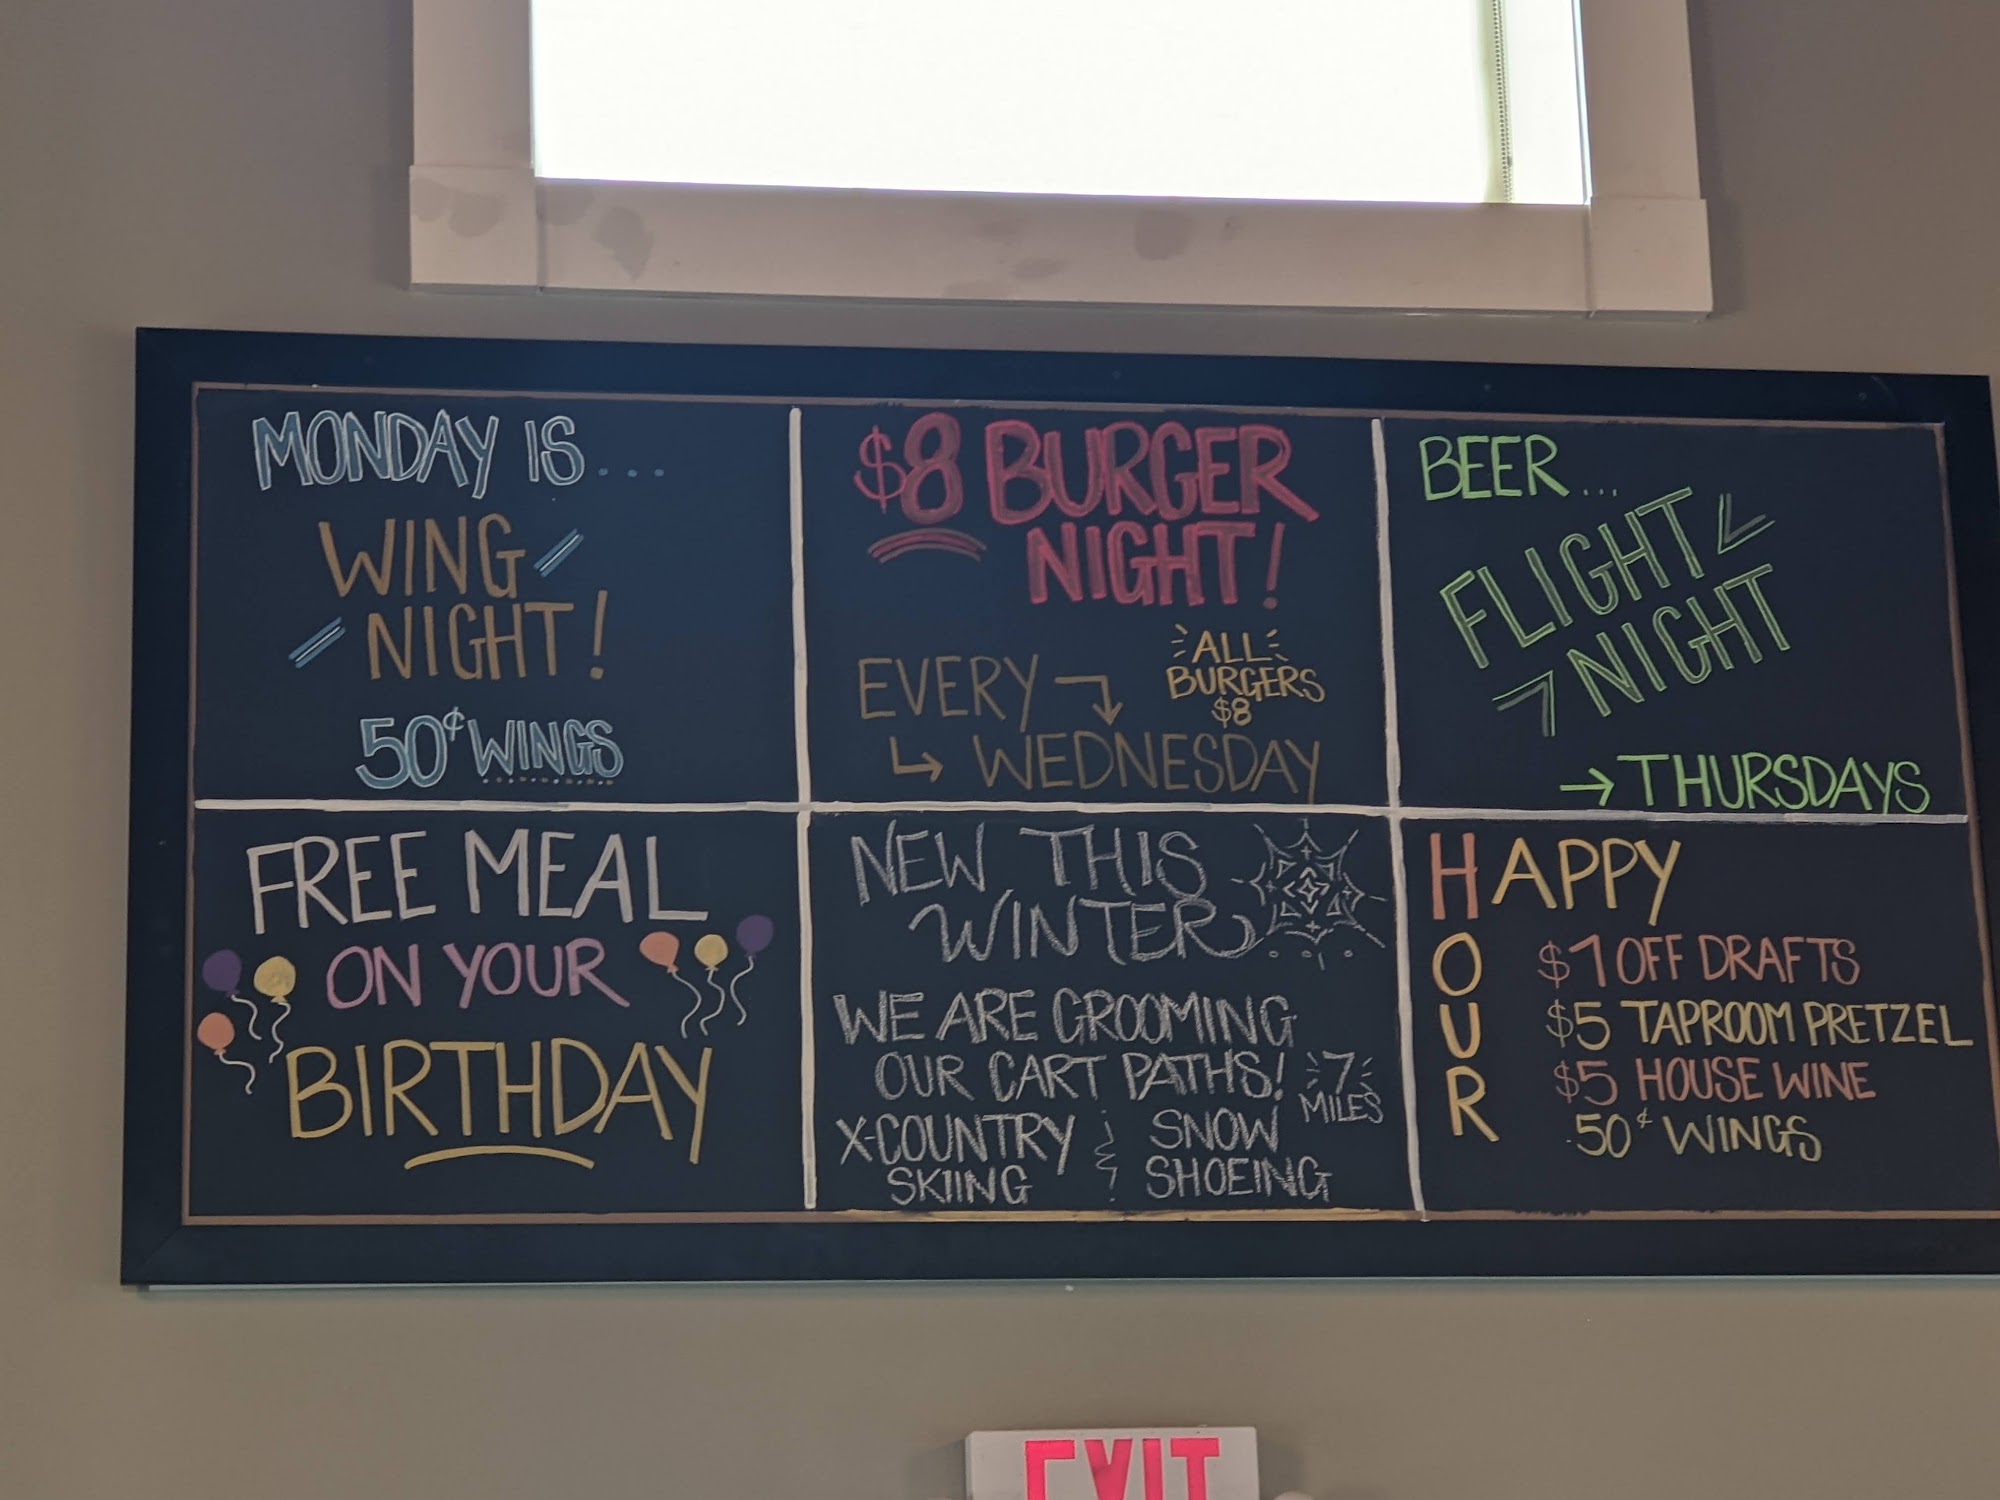 MONDAY IS...
WING
NIGHT!
50¢ WINGS
$8 BURGER
NIGHT!
ALL
BURGERS
$8
EVERY
WEDNESDAY
BEER...
FLIGHT
NIGHT
THURSDAYS
FREE MEAL
ON YOUR
BIRTHDAY
NEW THIS
WINTER
WE ARE GROOMING
OUR CART PATHS!
7
MILES
X-COUNTRY
SKIING
&
SNOW
SHOEING
HAPPY
HOUR
$1 OFF DRAFTS
$5 TAPROOM PRETZEL
$5 HOUSE WINE
50¢ WINGS
EXIT